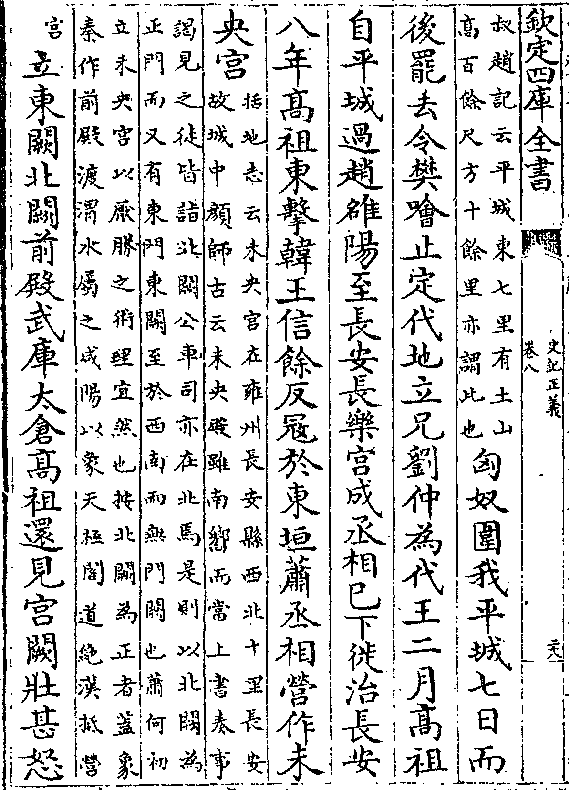 欽定四庫全書
史記正義
卷八
叔趙記云平城東七里有土山
高百餘尺方十餘里亦謂此也
匈奴圍我平城七日而
後罷去令樊噲止定代地立兄劉仲為代王二月高祖
自平城過趙雒陽至長安長樂宮成丞相已下徙治長安
八年高祖東擊韓王信餘反冦於東垣蕭丞相營作未
央宮
括地志云未央宮在雍州長安縣西北十里長安
故城中顔師古云未央殿雖南嚮而當上書奏事
謁見之徒皆詣北闕公車司亦在北焉是則以北闕為
正門而又有東門東闕至於西南而無門闕也蕭何初
立未央宮以厭勝之術理宜然也按北闕為正者蓋象
秦作前殿渡渭水屬之咸陽以象天極閣道絶漢抵營
宮
立東闕北闕前殿武庫太倉高祖還見宮闕壯甚怒